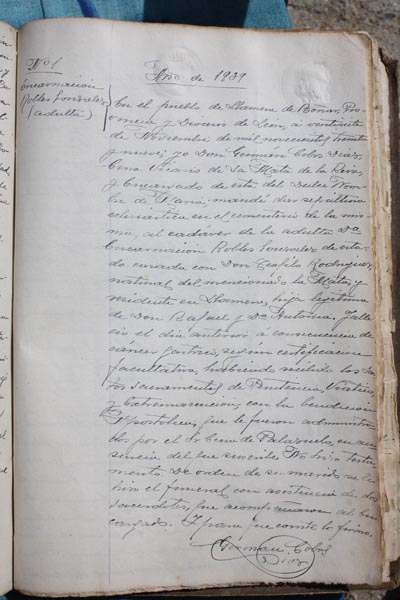 Nº 1
Encarnación
Robles Gonzalez
(adulta)
Año de 1939
En el pueblo de Llamera de Boñar, Pro-
vincia y Diócesis de León, a veintisiete
de Noviembre de mil novecientos treinta
y nueve; yo Don Germán Cobos Diez,
Cura Vicario de La Mata de la Riva,
y Encargado de esta del Dulce Nom-
bre de Maria, mandé dar sepultura
eclesiastica en el cementerio de la mis-
ma, al cadáver de la adulta Dª
Encarnación Robles Gonzalez de esta-
do casada con Don Teofilo Rodriguez,
natural del mencionado la Mata, y
residente en Llamera, hija legitima
de Don Rafael y Dª Antonia. Falle-
ció el dia anterior a consecuencia de
cáncer gastrico, según certificacion
facultativa, habiendo recibido los San-
tos Sacramentos de Penitencia Viatico,
y Extremauncion, con la bendicion
Apostolica, que le fueron administra-
dos por el Sr Cura de Palazuelo, en au-
sencia del que suscribe. No hizo testa-
mento. De orden de su marido se le
hizo el funeral con asistencia de dos
sacerdotes, que acompañaron al En-
cargado. Y para que conste lo firmo.
Germán Cobos
Diez